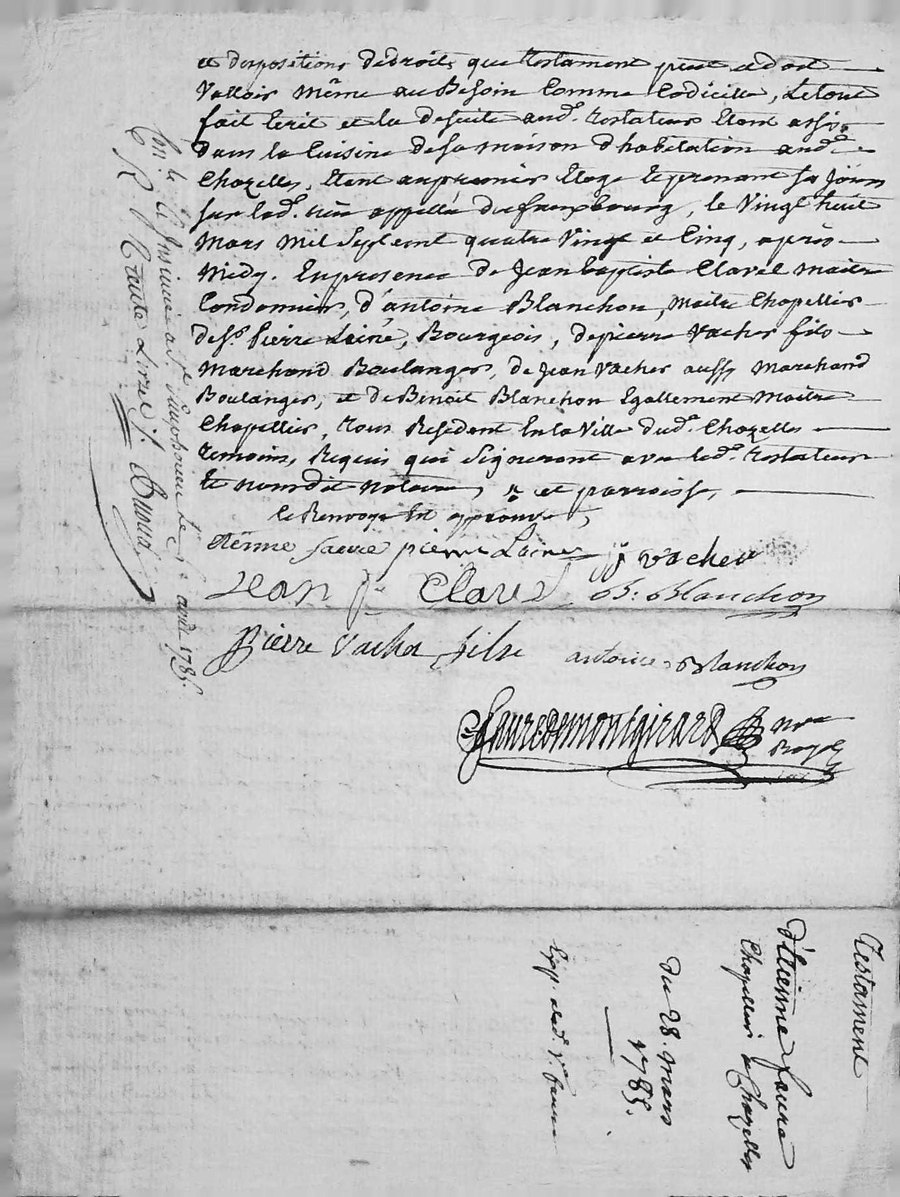 et dispositions de droit, que testament peut et doit
Valloir même au Besoin Comme Codicille, Le tout
fait Lecrit et Lu de suite aud. testateur Etant assis
dans la Cuisine de sa maison d'habitation aud.
Chazelles, Etant au premier Etage Et prenant ses Jours
sur lad. rüe appellée du fauxbourg, le Vingt huit
Mars Mil Sept Cent quatre Vingt et Cinq, après
Midy. En presence de Jean Baptiste Clavel Maitre
Cordonnier, d'antoine Blanchon, Maitre Chapellier
de Sr. Pierre Lainé, Bourgeois, de pierre Vacher fils
Marchand Boulanger, de Jean Vacher aussy Marchand
Boulanger, et de Benoit Blanchon Egallement Maitre
Chapellier, tous Résident En la Ville dud. Chazelles
temoins, Requis qui Signeront avec led. testateur
Et nousdit notaire, et parroisse,
le Renvoye Est approuvé,
etienne faure pierre Lainé JJ vacher
Jean Bte Clavel B. Blanchon
Pierre Vacher fils antoine Blanchon
Faure de montgirard Nre
Royal
août 1785.
Testament
d'Etienne faure
Chapellier à Chazelles
du 28. Mars
1785.
Exp.